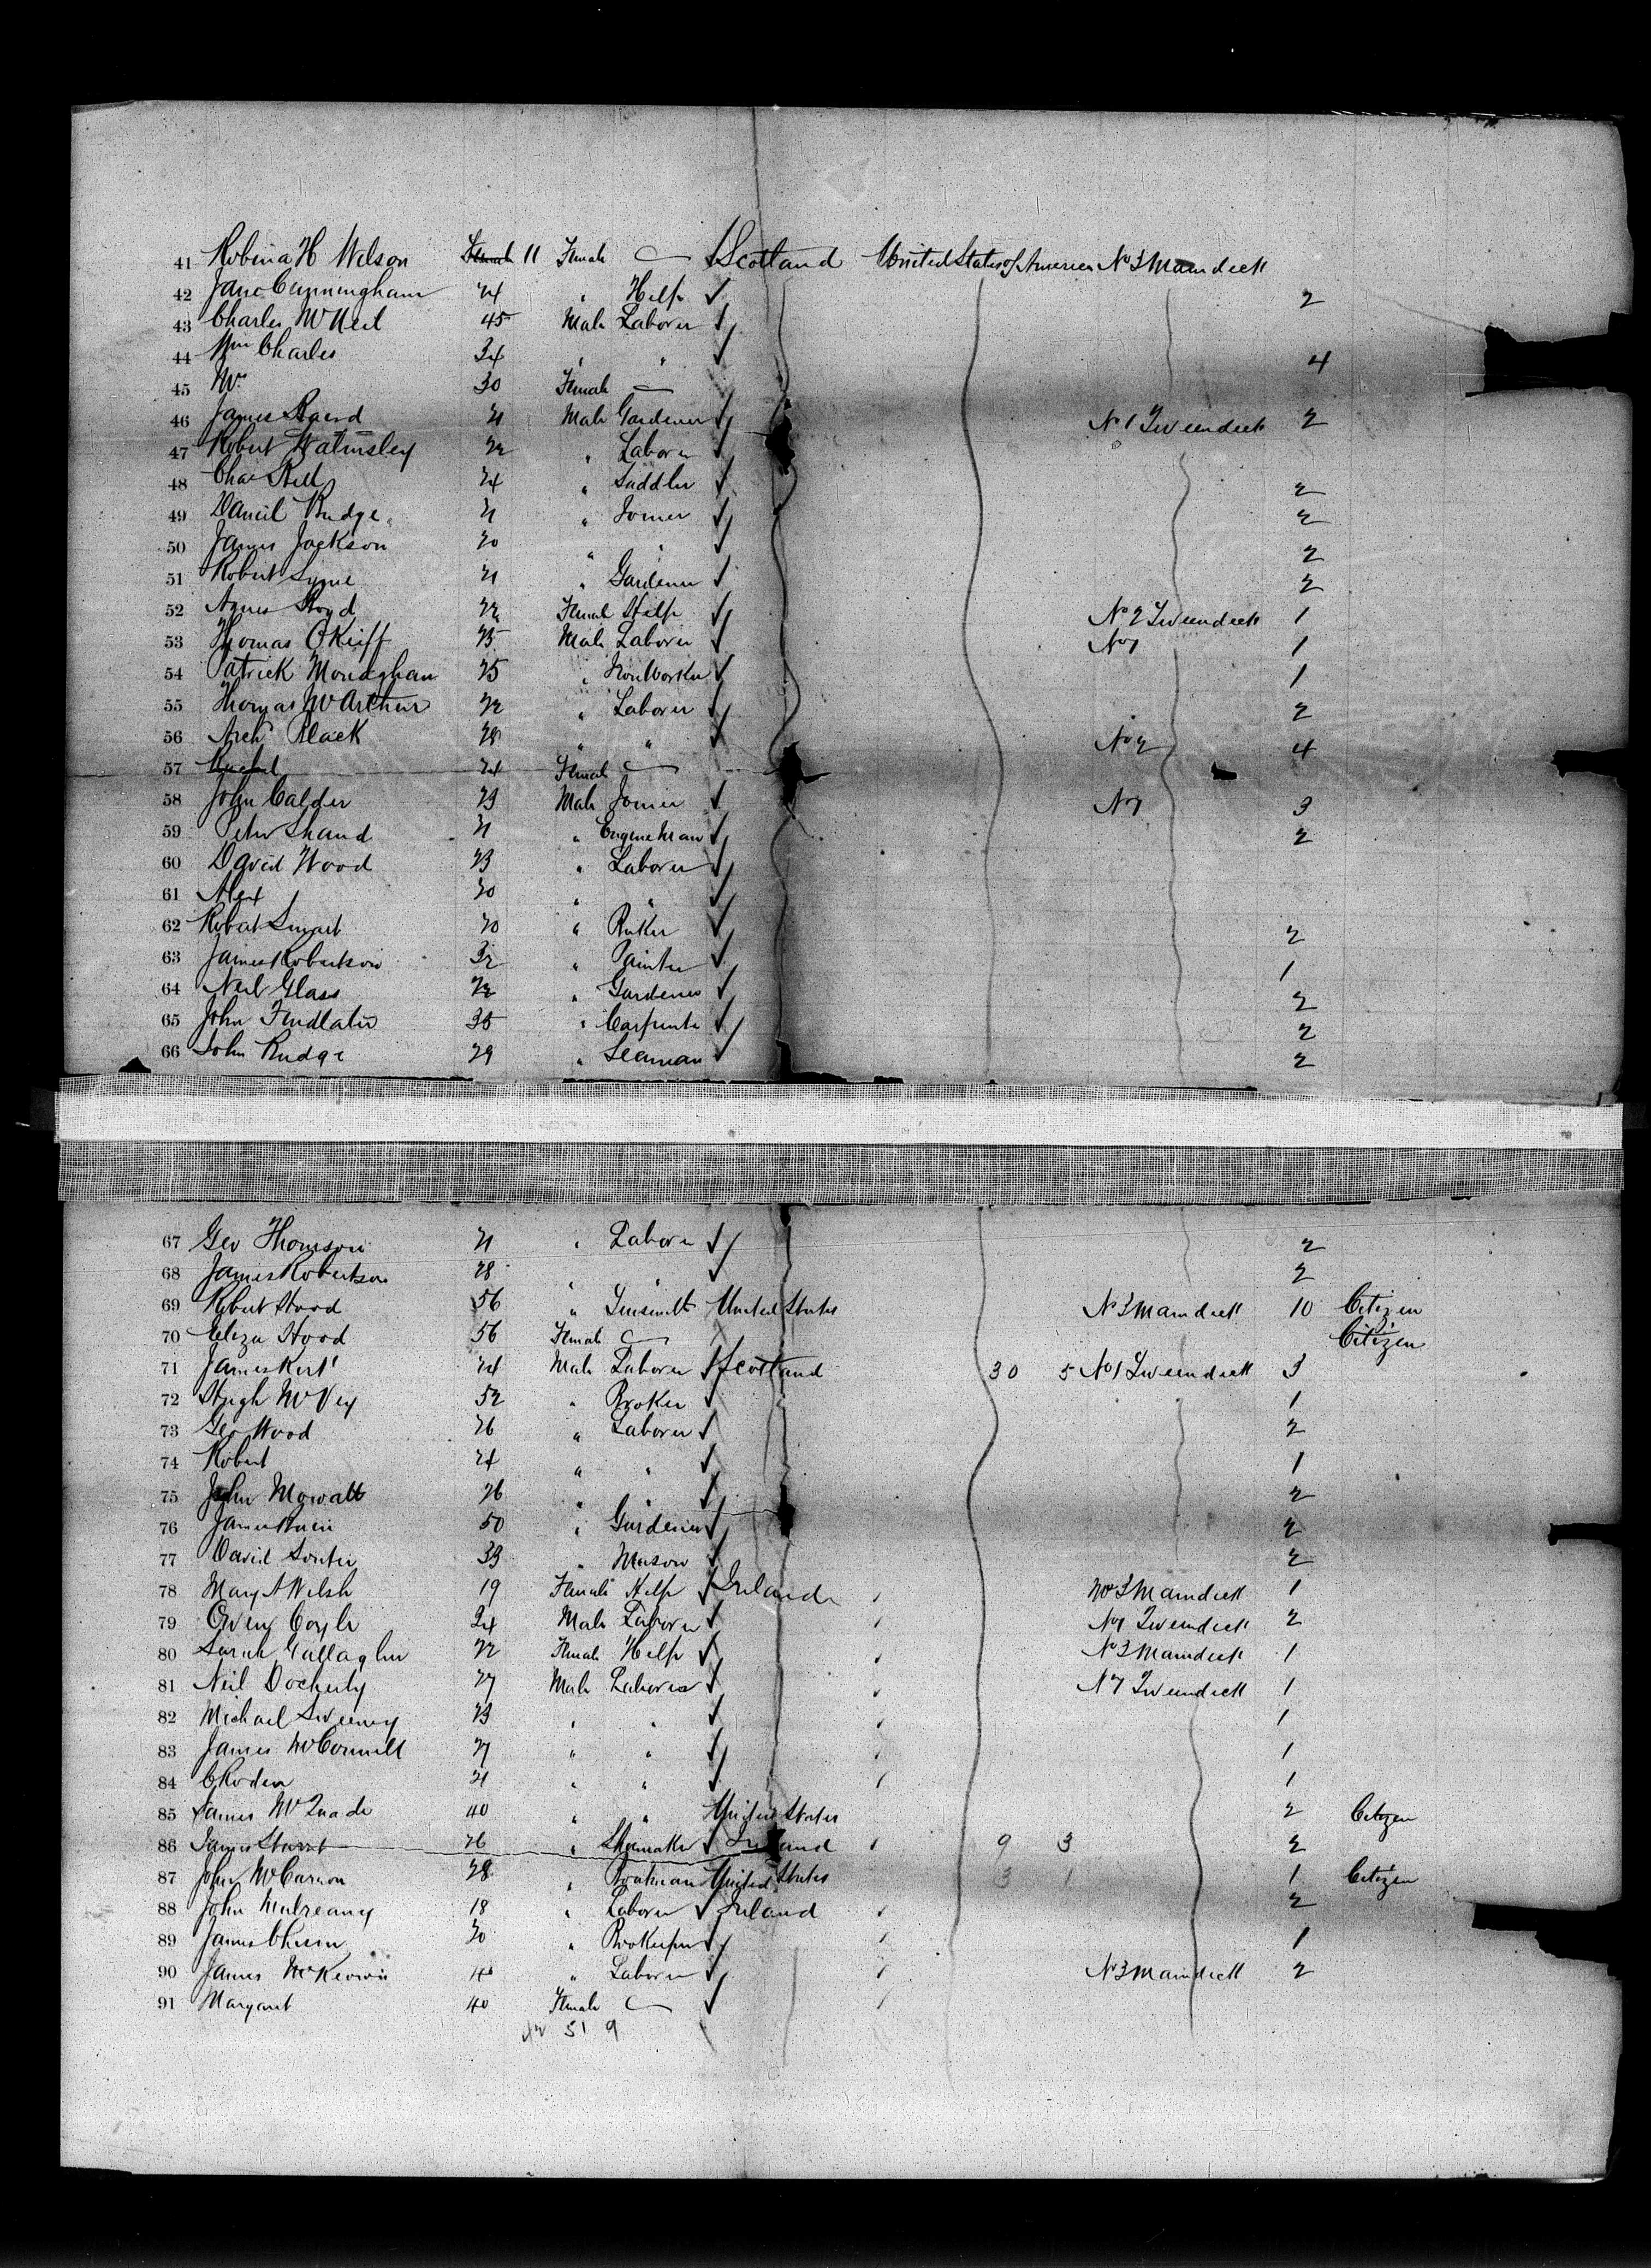 41 Robina H Wilson Female 11 Female Scotland United States of America No 3 Maindeck
42 Jane Cunningham 24 " Help 2
43 Charles McNeil 45 Male Laborer
44 Wm Charles 34 " " 4
45 30 Female
46 James Baird 21 Male Gardener No 1 Tweendeck 2
47 Robert Walmsley 22 " Laborer
48 Chas 24 " Saddler 2
49 Daniel Budge 21 " Joiner 2
50 James Jackson 20 " " 2
51 Robert 21 " Gardener 2
52 Agnes Boyd 22 Female Help No 2 Tweendeck 1
53 Thomas OKeiff 25 Male Laborer No 1 1
54 Patrick Monaghan 25 " Iron Worker 1
55 Thomas McArthur 22 " Laborer 2
56 Arch Black 28 " " No 2 4
57 Rachel 24 Female
58 John Calder 23 Male Joiner No 1 3
59 Peter Shand 21 " Engineman 2
60 David Wood 23 " Laborer
61 Alex 20 " "
62 Robert Smart 20 " Baker 2
63 James Robertson 32 " Painter 1
64 Neil Glass 22 " Gardener 2
65 John Findlater 35 " Carpenter 2
66 John Budge 29 " Seaman 2
67 Geo Thomson 21 " Laborer 2
68 James Robertson 28 " " 2
69 Robert Hood 56 " Tinsmith United States No 3 Maindeck 10 Citizen
70 Eliza Hood 56 Female Citizen
71 James Kerr 24 Male Laborer Scotland 30 5 No 1 Tweendeck 3
72 Hugh McVey 52 " Broker 1
73 Geo Wood 26 " Laborer 2
74 Robert 24 " " 1
75 John Mowatt 26 " " 2
76 James 50 " Gardener 2
77 David Souter 33 " Mason 2
78 Mary A Welsh 19 Female Help Ireland No 3 Maindeck 1
79 Owen Coyle 24 Male Laborer No 1 Tweendeck 2
80 Sarah Gallagher 22 Female Help No 3 Maindeck 1
81 Neil Docherty 27 Male Laborer No 1 Tweendeck 1
82 Michael Sweeney 23 " " 1
83 James McConnell 27 " " 1
84 C Roden 21 " " 1
85 James McQuade 40 " " United States 2 Citizen
86 James Starrat 26 " Shoemaker Ireland 9 3 2
87 John McCarron 28 " Boatman United States 3 1 1 Citizen
88 John Mulreany 18 " Laborer Ireland 2
89 James 20 " Bookeeper 1
90 James McKeown " Laborer No 3 Maindeck 2
91 Margaret 40 Female
51 9